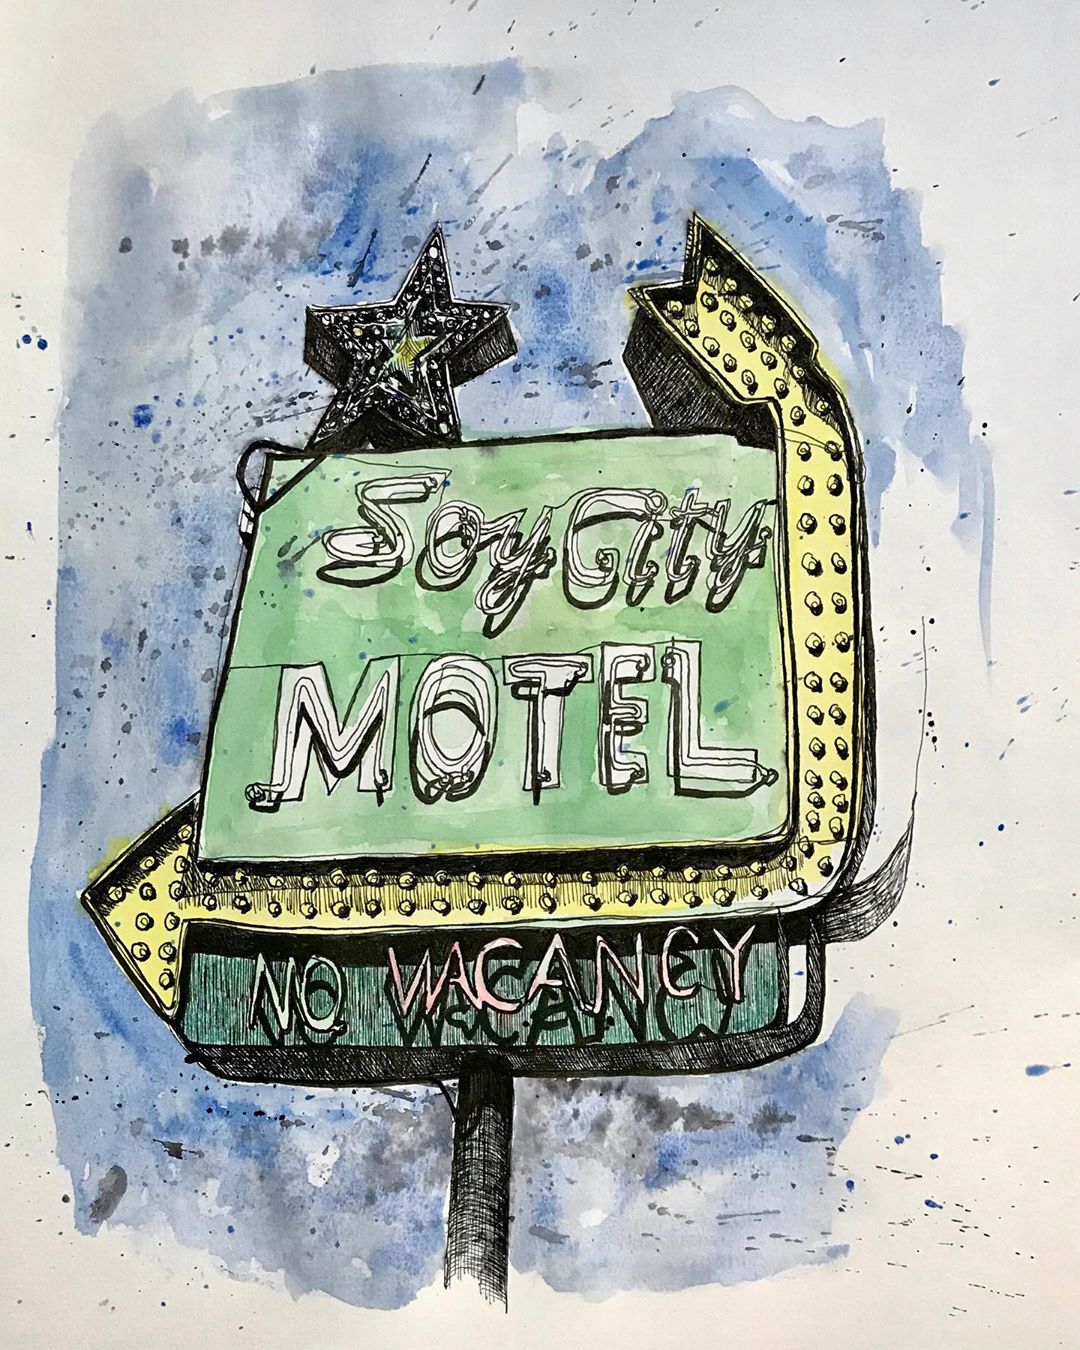 Soy City
MOTEL
NO VACANCY